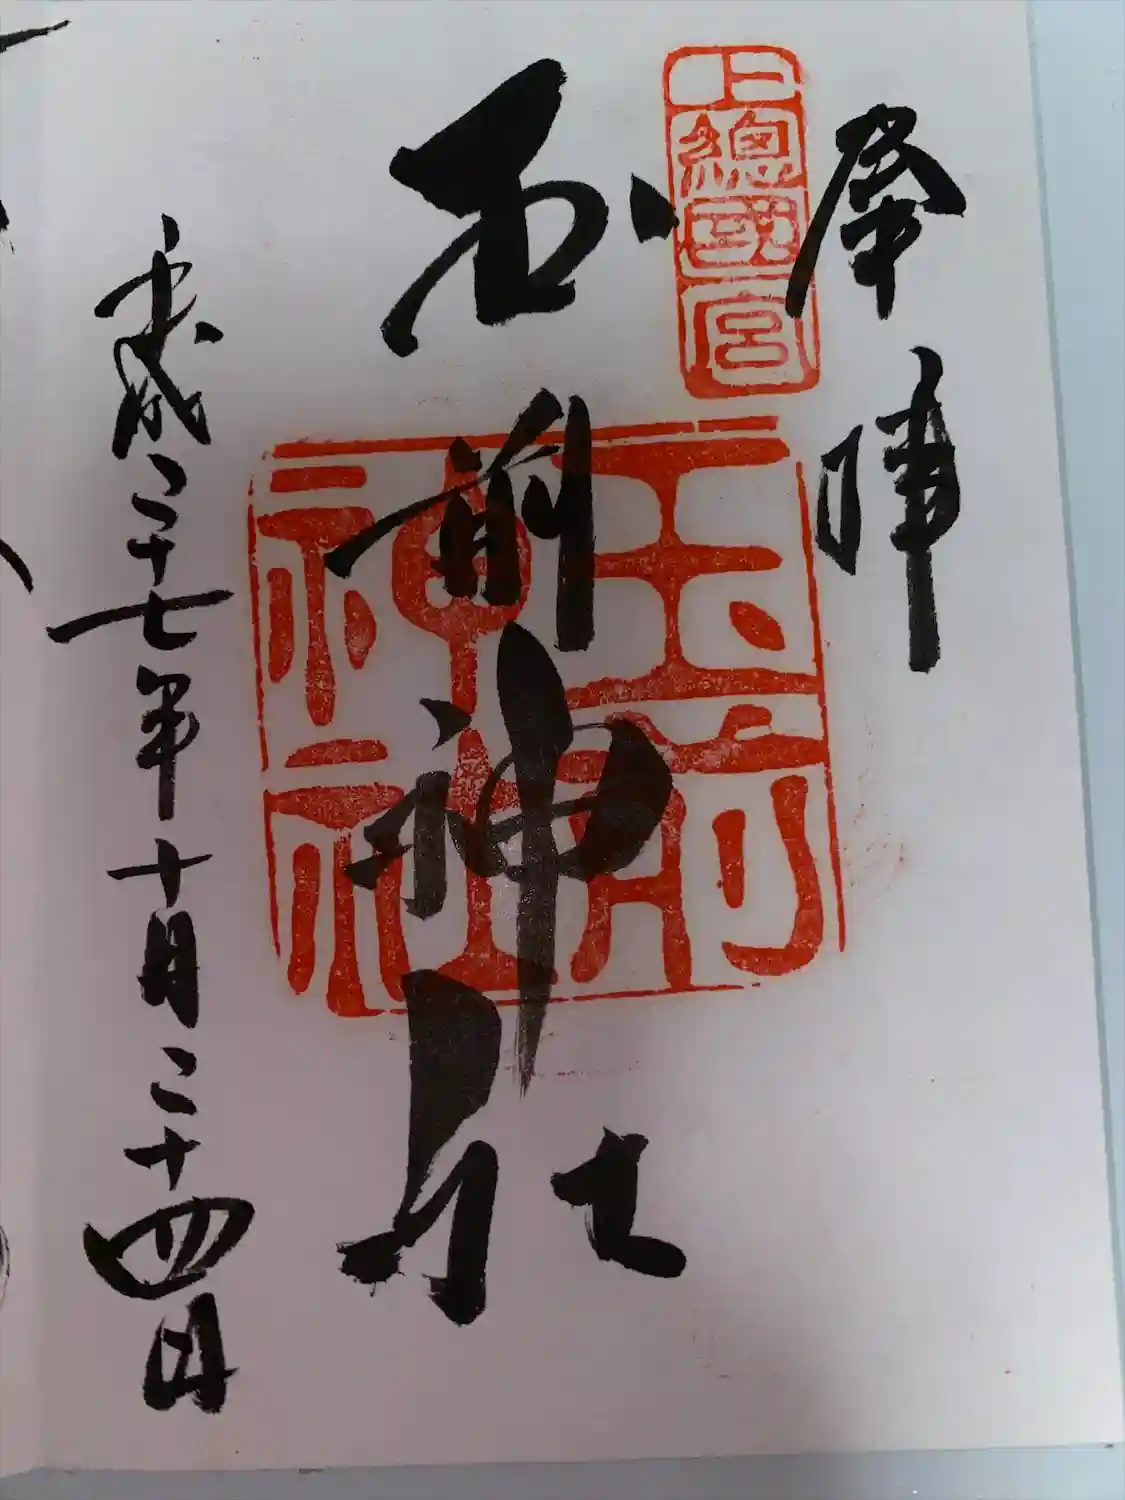 奉拝
上總國一宮
玉前神社
玉前神社
平成二十七年十月二十四日